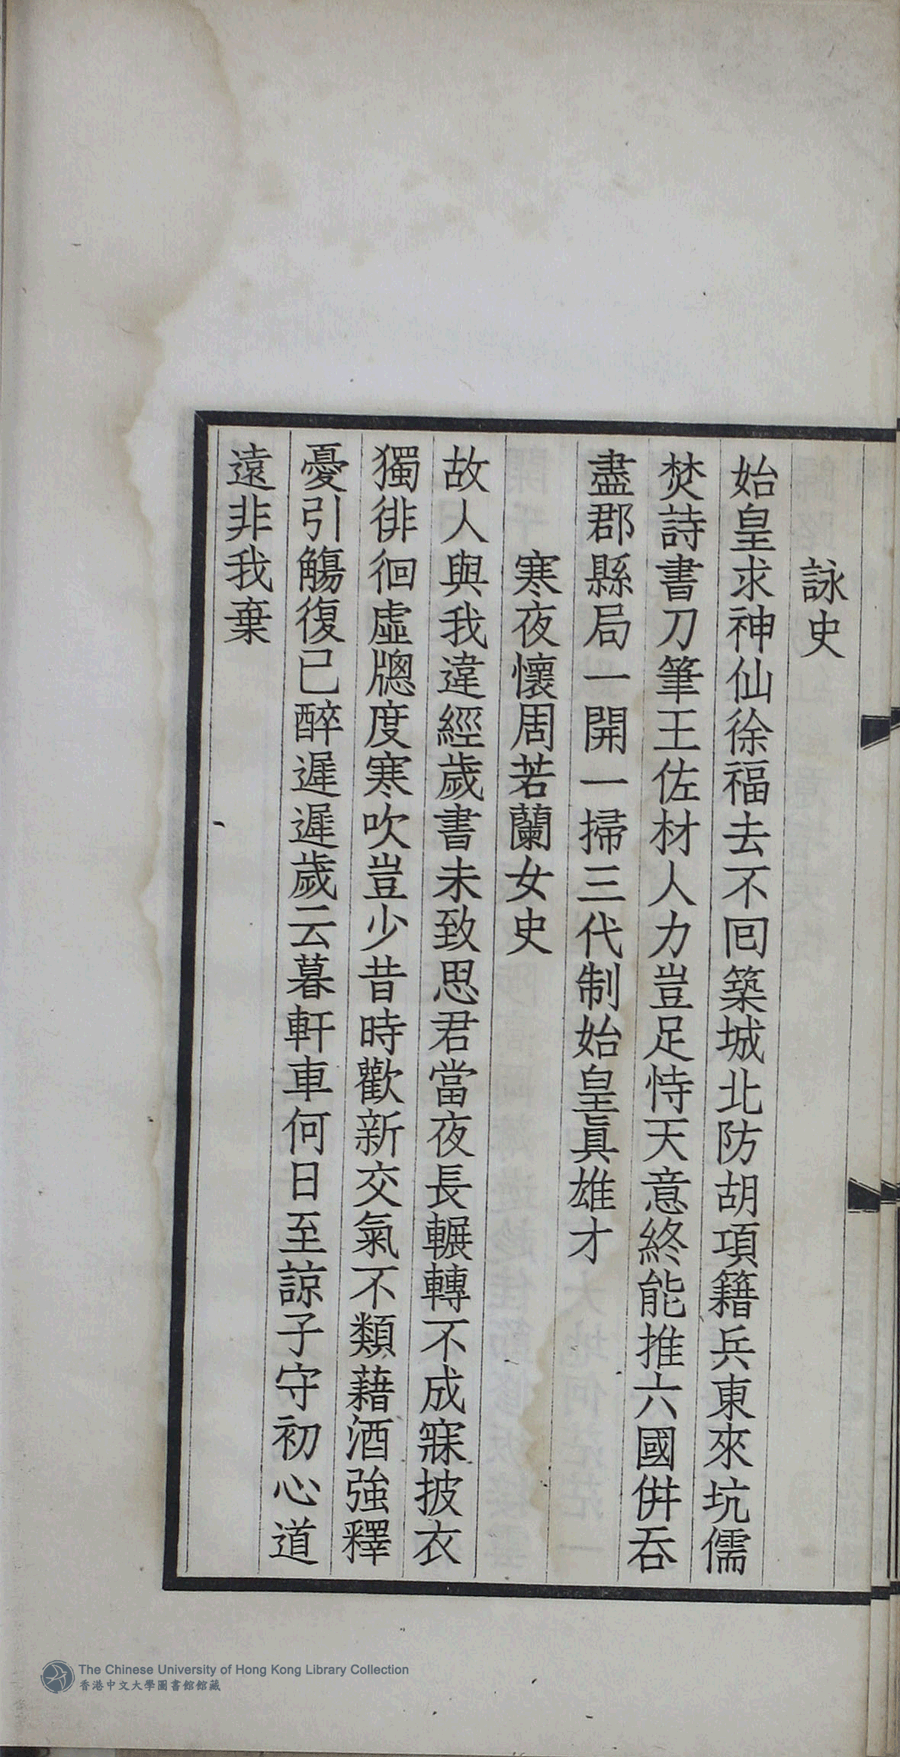 詠史
始皇求神仙徐福去不回築城北防胡項籍兵東來坑儒
焚詩書刀筆王佐材人力豈足恃天意終能推六國併吞
盡郡縣局一開一掃三代制始皇眞雄才
寒夜懷周若蘭女史
故人與我違經歲書未致思君當夜長輾轉不成寐披衣
獨徘徊虛牕度寒吹豈少昔時歡新交氣不類藉酒強釋
憂引觴復已醉遲遲歲云暮軒車何日至諒子守初心道
遠非我棄
The Chinese University of Hong Kong Library Collection
香港中文大學圖書館館藏